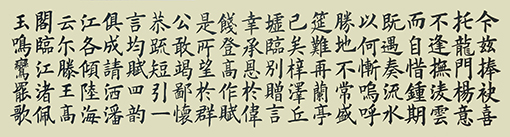 今茲捧袂喜
托龍門楊意
不逢撫淩雲
而自惜鍾期
既遇奏流水
以何慚嗚呼
勝地不常盛
筵難再蘭亭
已矣梓澤丘
墟臨別贈言
幸承恩於偉
餞登高作賦
是所望於群
公敢竭鄙懷
恭疏短引一
言均賦四韵
俱成請洒潘
江各傾陸海
云尔滕王高
閣臨江渚佩
玉鳴鸞罷歌